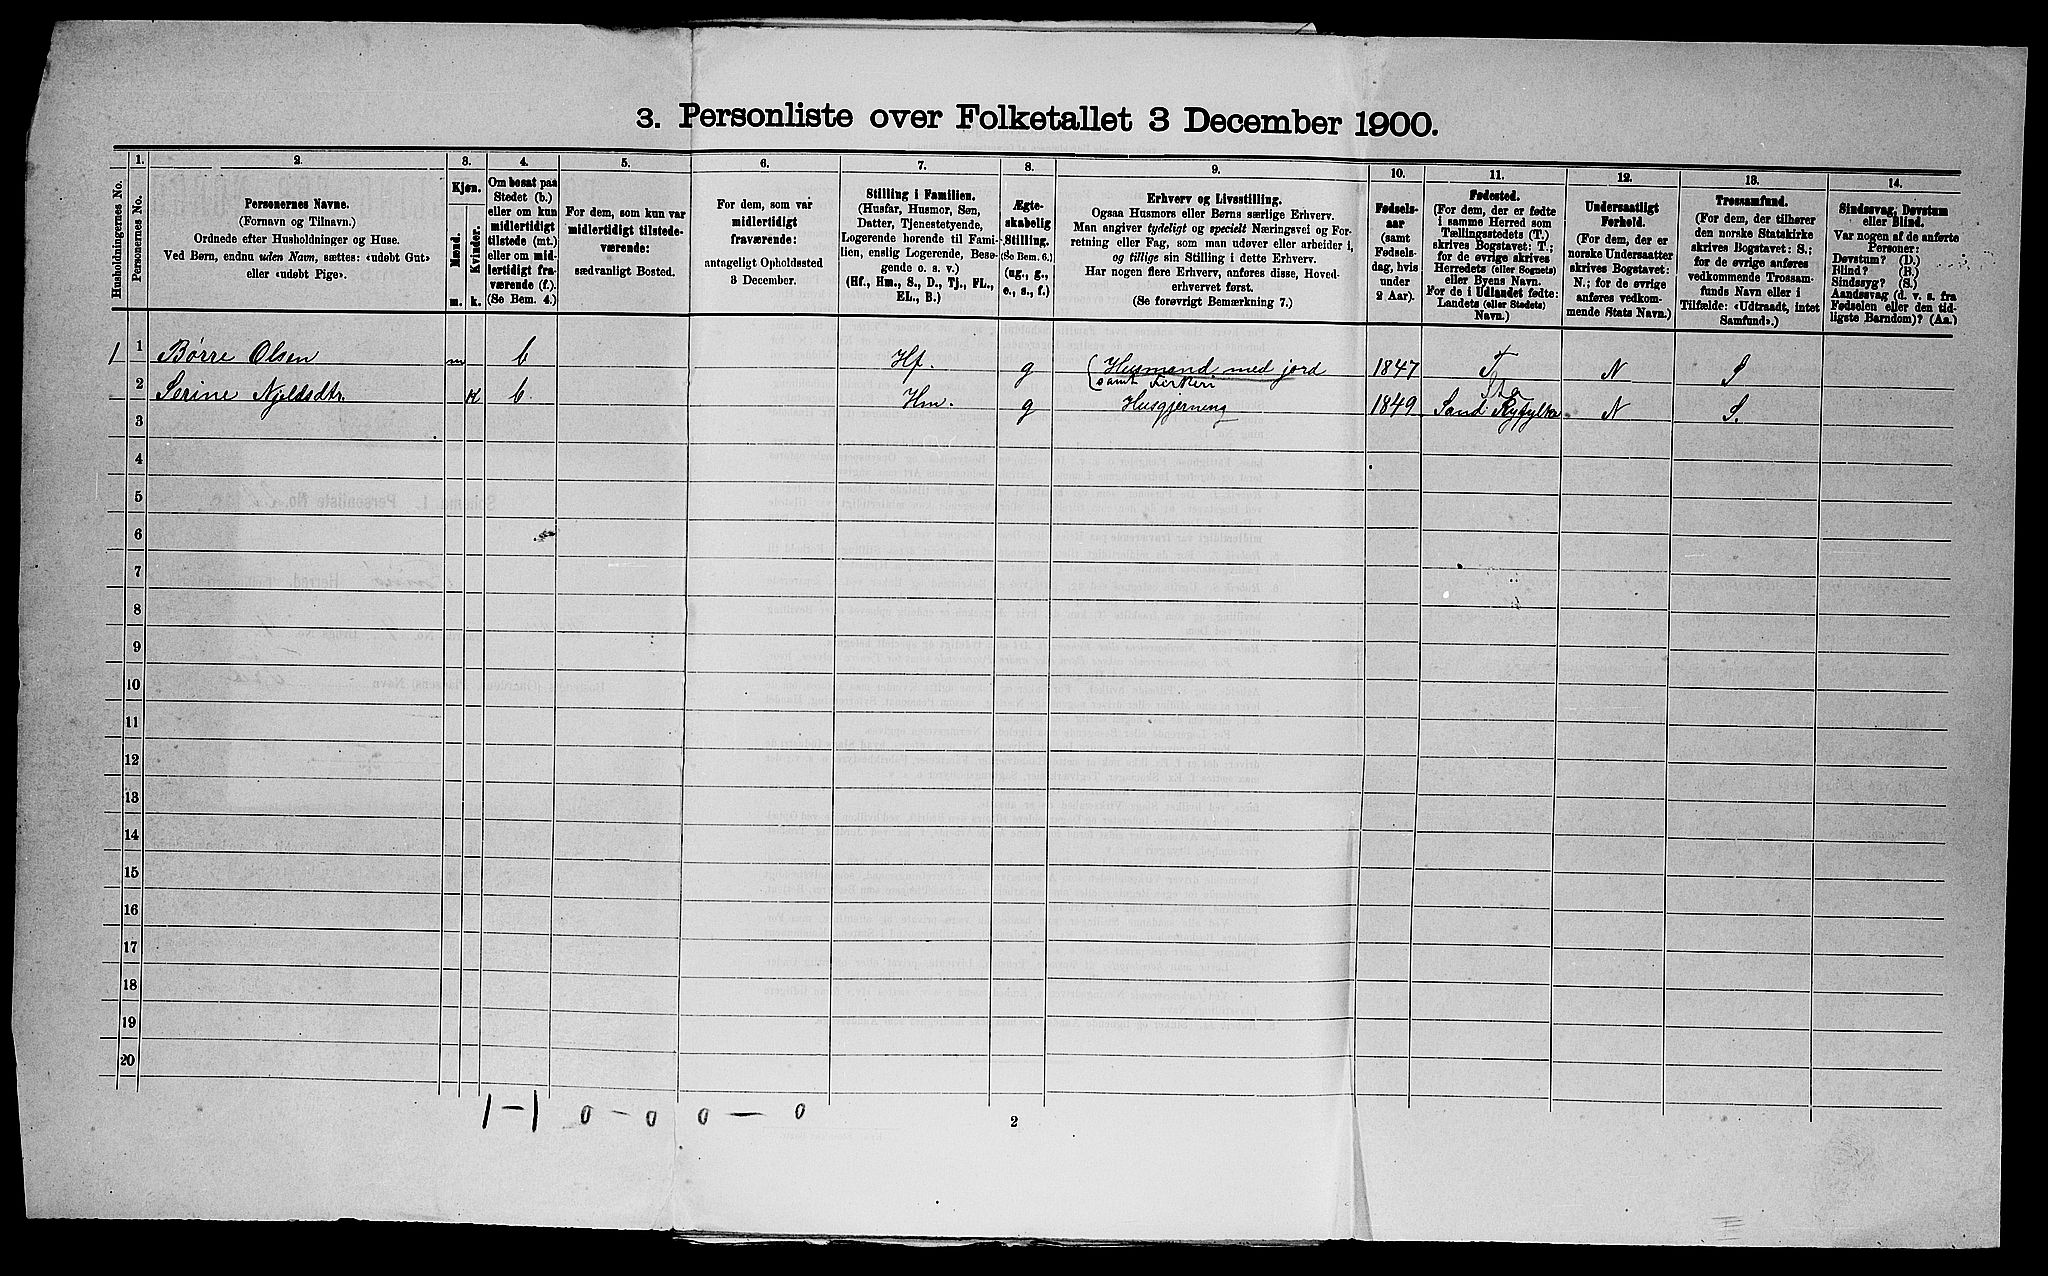 3. Personliste over Folketallet 3 December 1900.
Husholdningernes No.
1.
Personernes No.
2.
Personernes Navne.
(Fornavn og Tilnavn.)
Ordnede efter Husholdninger og Huse.
Ved Børn, endnu uden Navn, sættes: «udøbt Gut»
eller «udøbt Pige».
3.
Kjøn.
Mænd.
Kvinder.
m.
k.
4.
Om bosat paa
Stedet (b.)
eller om kun
midlertidigt
tilstede (mt.)
eller om mid-
lertidigt fra-
værende (f.).
(Se Bem. 4.)
5.
For dem, som kun var
midlertidigt tilstede-
værende:
sædvanligt Bosted.
6.
For dem, som var
midlertidigt
fraværende:
antageligt Opholdssted
3 December.
7.
Stilling i Familien.
(Husfar, Husmor, Søn,
Datter, Tjenestetyende,
Logerende hørende til Fami-
lien, enslig Logerende, Besø-
gende o. s. v.)
(Hf., Hm., S., D., Tj., FL.,
EL., B.)
8.
Ægte-
skabelig
Stilling.
(Se Bem. 6.)
(ug., g.,
e., s., f.)
9.
Erhverv og Livsstilling.
Ogsaa Husmors eller Børns særlige Erhverv.
Man angiver tydeligt og specielt Næringsvei og For-
retning eller Fag, som man udøver eller arbeider i,
og tillige sin Stilling i dette Erhverv.
Har nogen flere Erhverv, anføres disse, Hoved-
erhvervet først.
(Se forøvrigt Bemærkning 7.)
10.
Fødsels-
aar
(samt
Fødsels-
dag, hvis
under
2 Aar).
11.
Fødested.
(For dem, der er fødte
i samme Herred som
Tællingsstedets (T.)
skrives Bogstavet: T.;
for de øvrige skrives
Herredets (eller Sognets)
eller Byens Navn.
For de i Udlandet fødte:
Landets (eller Stedets)
Navn.)
12.
Undersaatligt
Forhold.
(For dem, der er
norske Undersaatter
skrives Bogstavet:
N.; for de øvrige
anføres vedkom-
mende Stats Navn.)
13.
Trossamfund.
(For dem, der tilhører
den norske Statskirke
skrives Bogstavet: S.;
for de øvrige anføres
vedkommende Trossam-
funds Navn eller i
Tilfælde: «Udtraadt, intet
Samfund».)
14.
Sindssvag, Døvstum
eller Blind.
Var nogen af de anførte
Personer:
Døvstum? (D.)
Blind? (B.)
Sindssyg? (S.)
Aandssvag (d. v. s. fra
Fødselen eller den tid-
ligste Barndom)? (Aa.)
1 1 Børre Olsen m b Hf. g Husmand med jord 1847 T N S
samt
2 Serine Njeldsdtr. K b. Hm. g Husgjerning 1849 Sand Ryfylke N S.
3
4
5
6
7
8
9
10
11
12
13
14
15
16
17
18
19
20
1 – 1 0 – 0 0 – 0
2